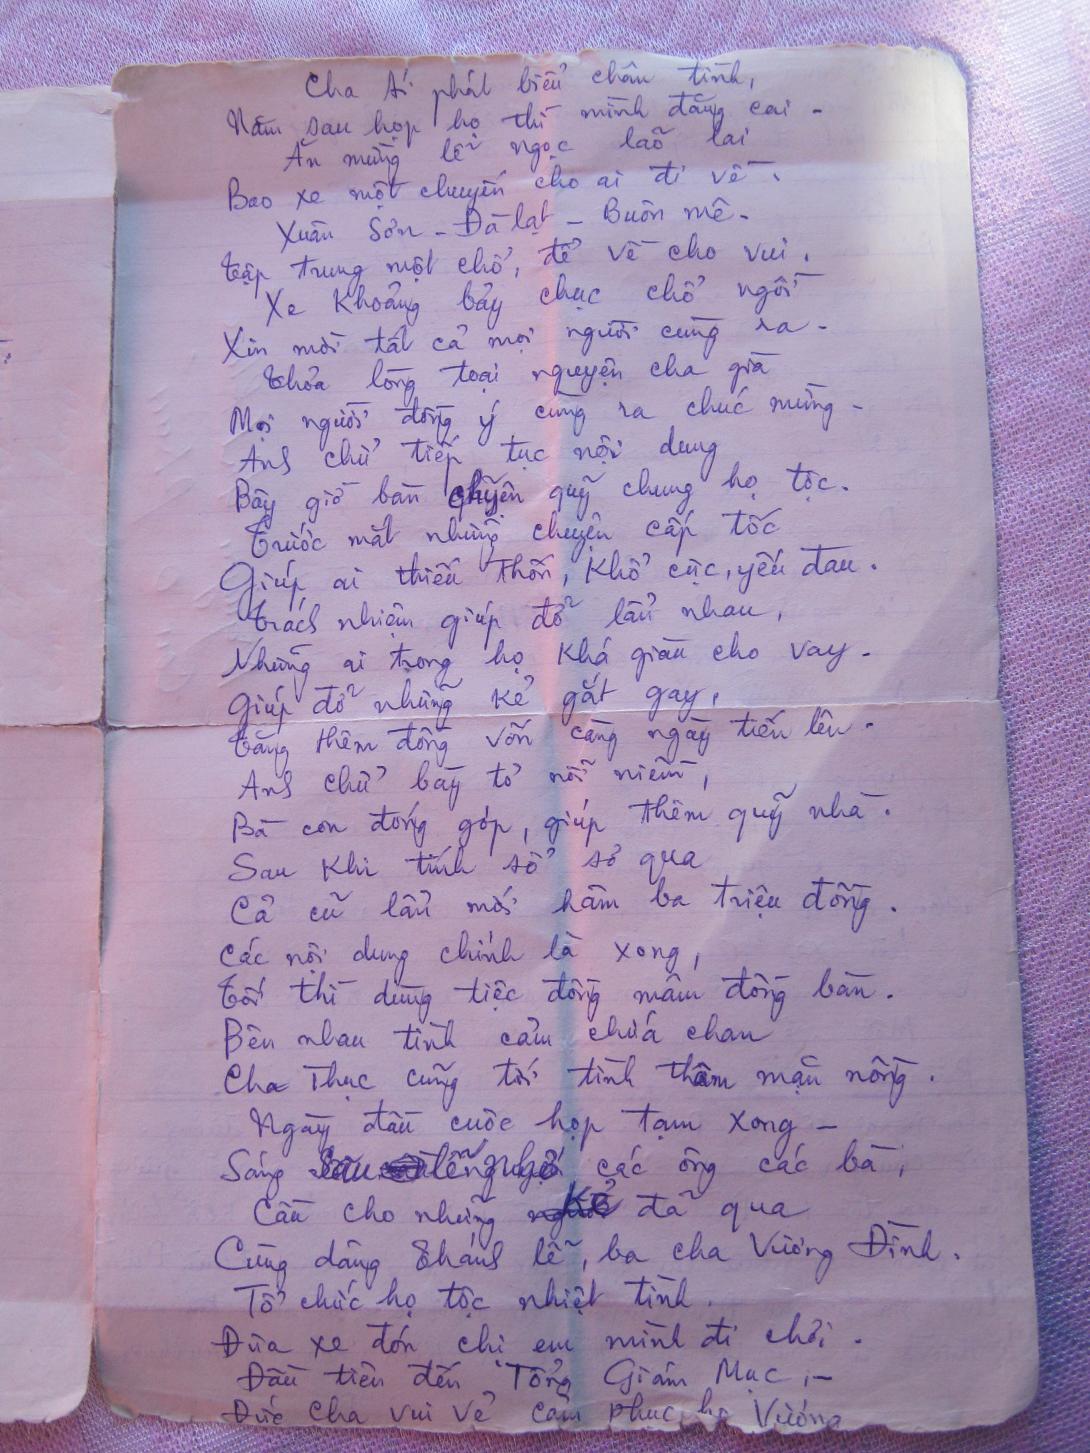 Cha Ái phát biểu chân tình,
Năm sau họp họ thì mình đăng cai -
Ăn mừng lễ ngọc lão lai
Bao xe một chuyến cho ai đi về.
Xuân Sơn - Đà lạt - Buôn mê -
Tập trung một chổ, để về cho vui.
Xe khoảng bảy chục chổ ngồi
Xin mời tất cả mọi người cùng ra -
Thỏa lòng toại nguyện cha già
Mọi người đồng ý cùng ra chúc mừng -
Anh chử tiếp tục nội dung
Bây giờ bàn chuyện quỹ chung họ tộc.
Trước mắt những chuyện cấp tốc
Giúp ai thiếu thốn, khổ cực, yếu đau.
Trách nhiệm giúp đỡ lẫn nhau,
Những ai trong họ khá giàu cho vay -
Giúp đỡ những kẻ gắt gay,
Tăng thêm đồng vốn càng ngày tiến lên -
Anh chử bày tỏ nỗi niềm,
Bà con đóng góp, giúp thêm quỹ nhà.
Sau khi tính sổ sơ qua
Cả cũ lẫn mới hăm ba triệu đồng.
Các nội dung chính là xong,
Tối thì dùng tiệc đồng mâm đồng bàn.
Bên nhau tình cảm chứa chan
Cha Thục cũng tới tình thâm mặn nồng.
Ngày đầu cuộc họp tạm xong -
Sáng các ông các bà,
Cầu cho những kẻ đã qua
Cùng dâng Thánh lễ, ba cha Vương Đình.
Tổ chức họ tộc nhiệt tình.
Đưa xe đón chị em mình đi chơi.
Đầu tiên đến Tổng Giám Mục, -
Đức cha vui vẻ cảm phục họ Vương